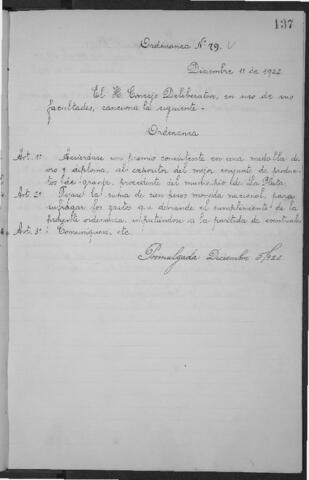 137
Ordenanza Nº 79.
Diciembre 1º de 1922
El H. Consejo Deliberativo, en uso de sus
facultades, sanciona la siguiente.
Ordenanza
Art. 1º Acuérdase un premio consistente en una medalla de
oro y diploma, al expositor del mejor conjunto de produc-
tos de granja, procedente del municipio de La Plata.
Art. 2º Fíjase la suma de cien pesos moneda nacional, para
sufragar los gastos que demande el cumplimiento de la
presente ordenanza, imputándose a la partida de eventuales
Art. 3º Comuníquese, etc.
Promulgada Diciembre 5/922.